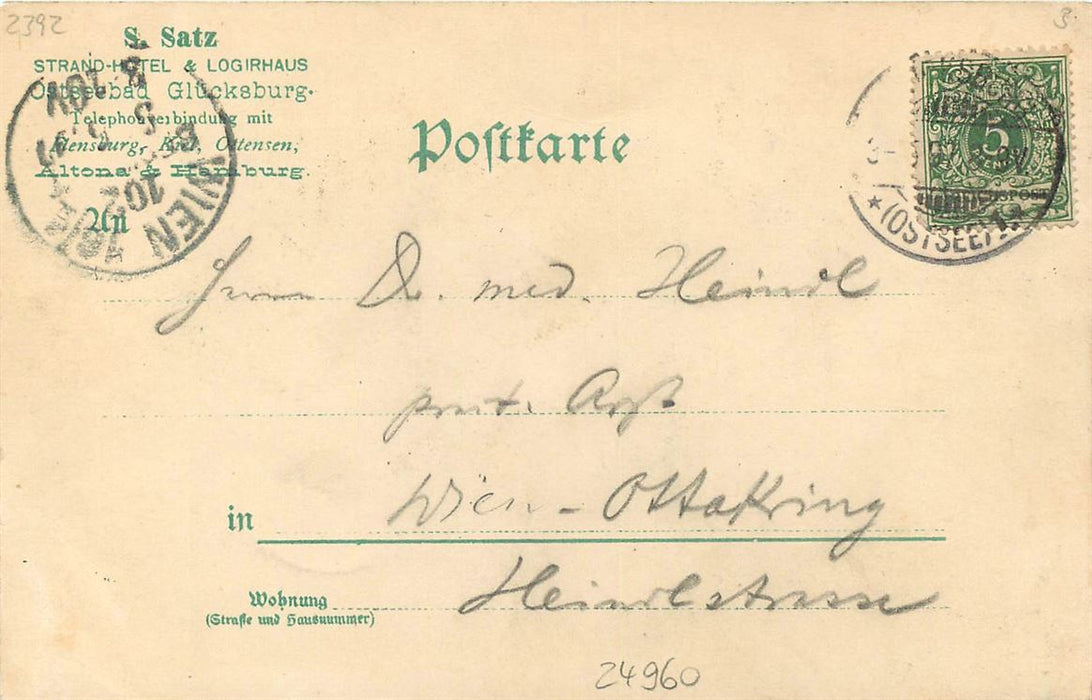 2392
3
S. Satz
STRAND-HOTEL & LOGIRHAUS
Ostseebad Glücksburg.
Telephonverbindung mit
Flensburg, Kiel, Ottensen,
Altona & Hamburg.
Postkarte
5
(OSTSEE)
WIEN
An
Herrn Dr. med. Heindl
prakt. Arzt
in Wien - Ottakring
Wohnung Heindlstrasse
(Straße und Hausnummer)
24960